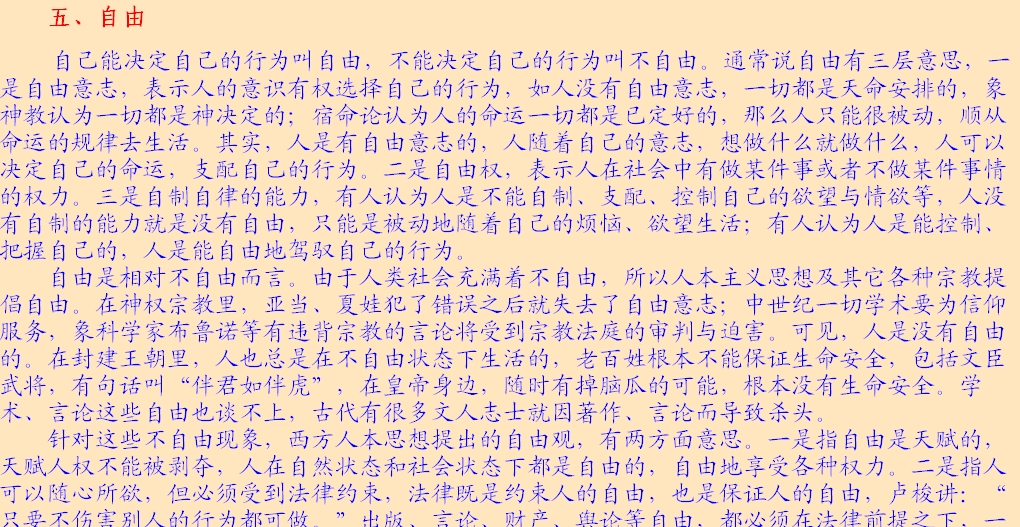 五、自由
自己能决定自己的行为叫自由，不能决定自己的行为叫不自由。通常说自由有三层意思，一
是自由意志，表示人的意识有权选择自己的行为，如人没有自由意志，一切都是天命安排的，象
神教认为一切都是神决定的；宿命论认为人的命运一切都是已定好的，那么人只能很被动，顺从
命运的规律去生活。其实，人是有自由意志的，人随着自己的意志，想做什么就做什么，人可以
决定自己的命运，支配自己的行为。二是自由权，表示人在社会中有做某件事或者不做某件事情
的权力。三是自制自律的能力，有人认为人是不能自制、支配、控制自己的欲望与情欲等，人没
有自制的能力就是没有自由，只能是被动地随着自己的烦恼、欲望生活；有人认为人是能控制、
把握自己的，人是能自由地驾驭自己的行为。
自由是相对不自由而言。由于人类社会充满着不自由，所以人本主义思想及其它各种宗教提
倡自由。在神权宗教里，亚当、夏娃犯了错误之后就失去了自由意志；中世纪一切学术要为信仰
服务，象科学家布鲁诺等有违背宗教的言论将受到宗教法庭的审判与迫害。可见，人是没有自由
的。在封建王朝里，人也总是在不自由状态下生活的，老百姓根本不能保证生命安全，包括文臣
武将，有句话叫“伴君如伴虎”，在皇帝身边，随时有掉脑瓜的可能，根本没有生命安全。学
术、言论这些自由也谈不上，古代有很多文人志士就因著作、言论而导致杀头。
针对这些不自由现象，西方人本思想提出的自由观，有两方面意思。一是指自由是天赋的，
天赋人权不能被剥夺，人在自然状态和社会状态下都是自由的，自由地享受各种权力。二是指人
可以随心所欲，但必须受到法律约束，法律既是约束人的自由，也是保证人的自由，卢梭讲：“
只要不伤害别人的行为都可做。”出版、言论、财产、舆论等自由，都必须在法律前提之下，一